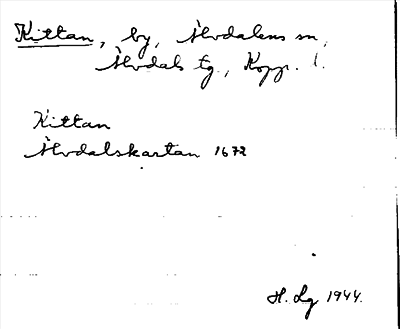 Kittan, by, Älvdalens sn,
Älvdals tg., Kopp. l.
Kittan
Älvdalskartan 1672
H. Lg 1944.